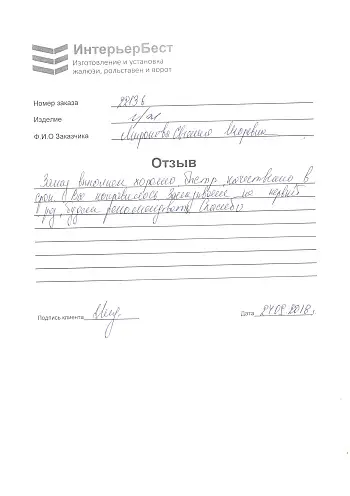 ИнтерьерБест
Изготовление и установка
жалюзи, рольставен и ворот
Номер заказа 22136
Изделие г/ж
Ф.И.О Заказчика Миронова Евгения Игоревна
Отзыв
Заказ выполнен хорошо быстро, качественно в
срок. Все понравилось. Заказываем не первый
раз, будем рекомендовать. Спасибо
Подпись клиента
Дата 24.09.2018 г